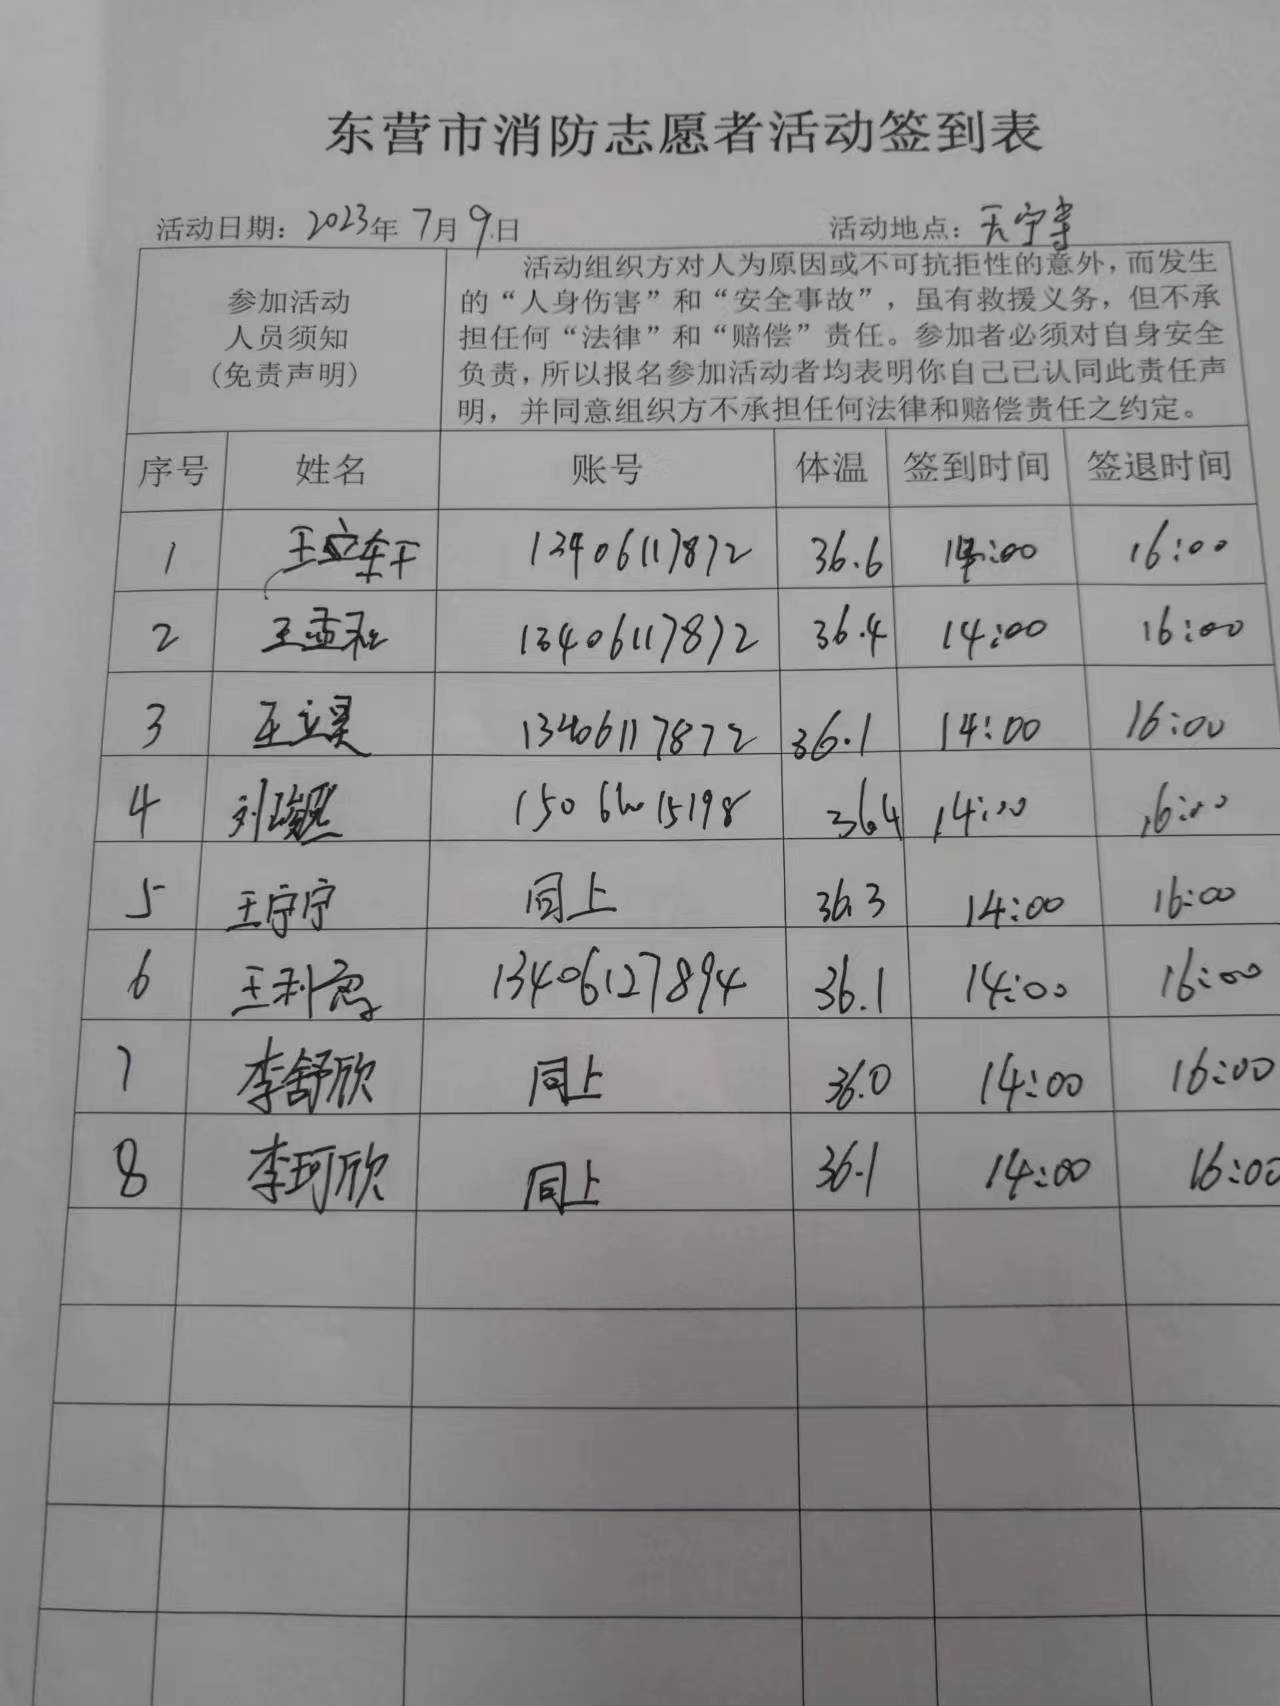 东营市消防志愿者活动签到表
活动日期：2023年 7月 9日 活动地点：天宁寺
参加活动
人员须知
(免责声明)
活动组织方对人为原因或不可抗拒性的意外，而发生
的“人身伤害”和“安全事故”，虽有救援义务，但不承
担任何“法律”和“赔偿”责任。参加者必须对自身安全
负责，所以报名参加活动者均表明你自己已认同此责任声
明，并同意组织方不承担任何法律和赔偿责任之约定。
序号 姓名 账号 体温 签到时间 签退时间
1 13406117872 36.6 14:00 16:00
2 13406117872 36.4 14:00 16:00
3 王立昊 13406117872 36.1 14:00 16:00
4 36.4 14:00 16:00
5 王宁宁 同上 36.3 14:00 16:00
6 13406127894 36.1 14:00 16:00
7 李舒欣 同上 36.0 14:00 16:00
8 李珂欣 同上 36.1 14:00 16:00